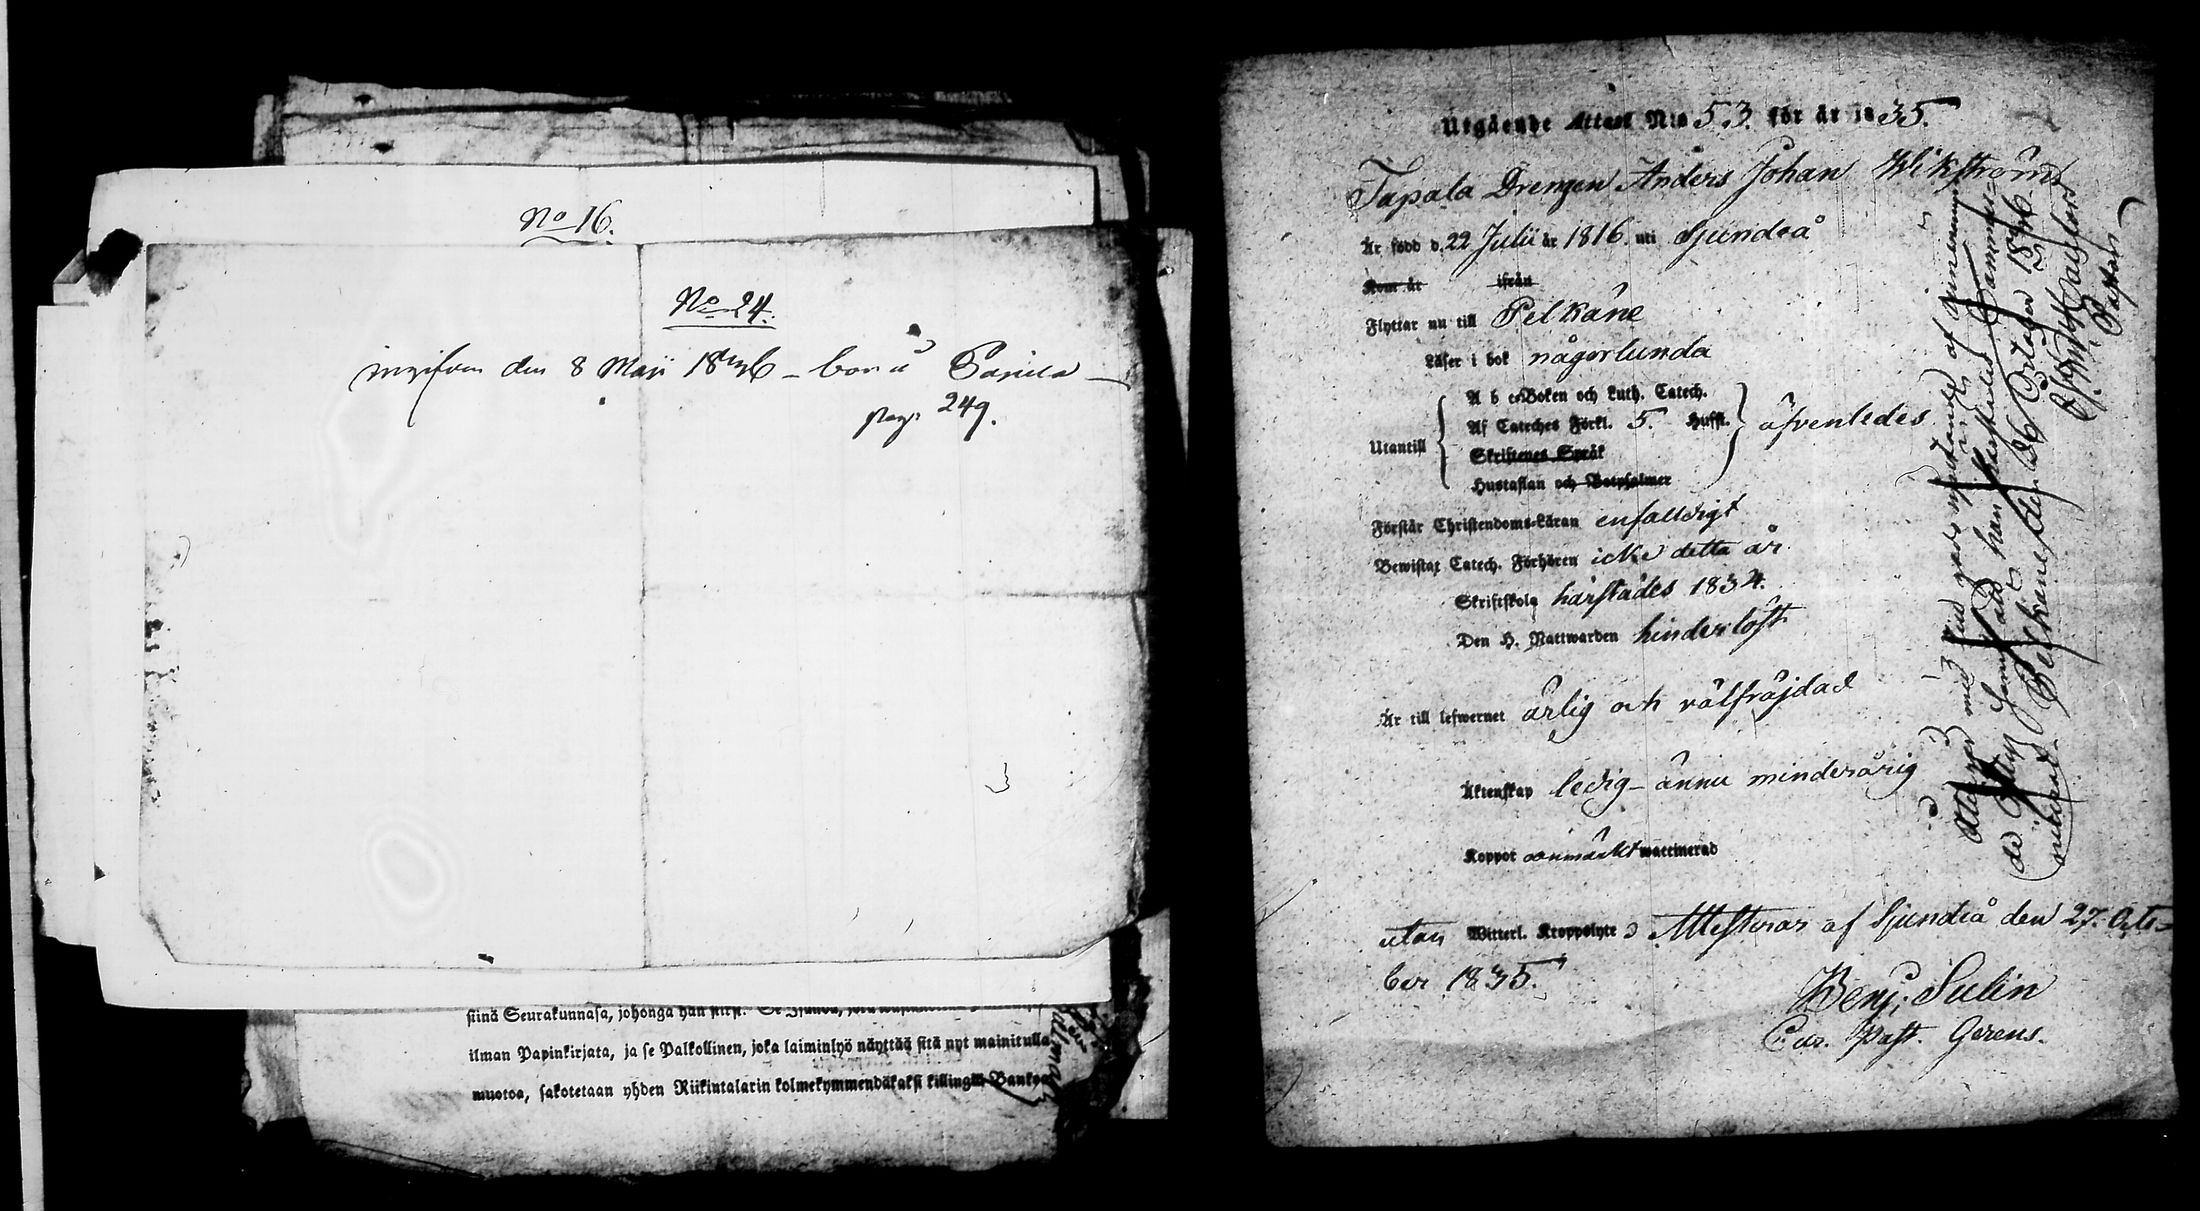 No 16.
No 24.
ingifven den 8 Maji 1836 – bor i
pag. 249.
stinä Seurakunnasa, johonga hän siirsi.
ilman Papinkirjata, ja se Palkollinen, joka laiminlyö näyttää sitä nyt mainitulla
muotoa, sakotetaan yhden Riikintalarin kolmekymmendäkaksi killingiä Banko
Utgående Attest N:o 53. för år 1835.
Tapala Drengen Anders Johan Wikström
Är född d. 22 Julii år 1816 uti Sjundeå
Kom år ifrån
Flyttar nu till Pelkäne
Läser i bok någorlunda
Utantill
A b c-Boken och Luth. Catech.
Af Cateches Förkl. 5. Hufst.
Skriftenes Språk
Hustaflan och Botpsalmer
äfvenledes
Förstår Christendoms-Läran enfalldigt
Bewistat Catech. Förhören icke detta år
Skriftskola härstädes 1834.
Den H. Nattwarden hinderlöst
Är till lefwernet ärlig och välfräjdad
Äktenskap ledig – ännu minderårig
Koppor oanmärkt waccinerad
utan Witterl. Kroppslyte Attesterar af Sjundeå den 27. Octo-
ber 1835.
Benj. Sulin
Cur. Past. Gerens.
med af
han
Pelkäne, den 26 1836.
Pastor